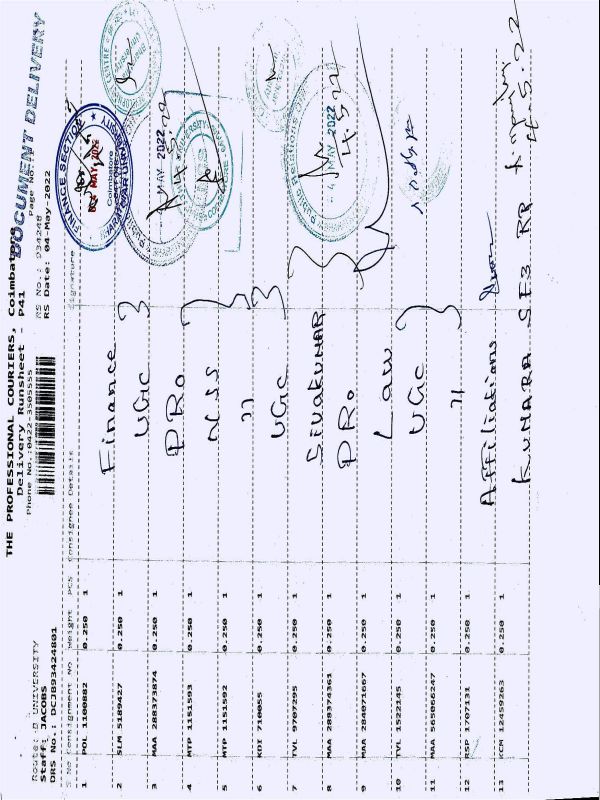 THE PROFESSIONAL COURIERS, Coimbatore
Delivery Runsheet - P41
Phone No.:0422-3505555
DOCUMENT DELIVERY
Page No.
Route: B UNIVERSITY
Staff: JACOBS
DRS No.: DCJB93424801
RS No.: 934248
RS Date: 04-May-2022
S No Consignment No Weight PCS Consignee Details Signature
1 POL 1100882 0.250 1 Finance
2 SLM 5189427 0.250 1 UGC
3 MAA 288373874 0.250 1 PRO
4 MTP 1151593 0.250 1 NSS
5 MTP 1151592 0.250 1 "
6 KOI 710055 0.250 1 UGC
7 TVL 9707295 0.250 1 SIVAKUMAR
8 MAA 289374361 0.250 1 PRO
9 MAA 284071667 0.250 1 Law
10 TVL 1522145 0.250 1 UGC
11 MAA 565066247 0.250 1 "
12 KSP 1707131 0.250 1 Affiliations
13 KCM 12459263 0.250 1 KUMARA SE3 RR
4.5.22
FINANCE SECTION
MAY 2022
Coimbatore
BHARATHIAR UNIVERSITY
Public Relations
MAY 2022
4.5.22
Public Relations
- 4 MAY 2022
4.5.22